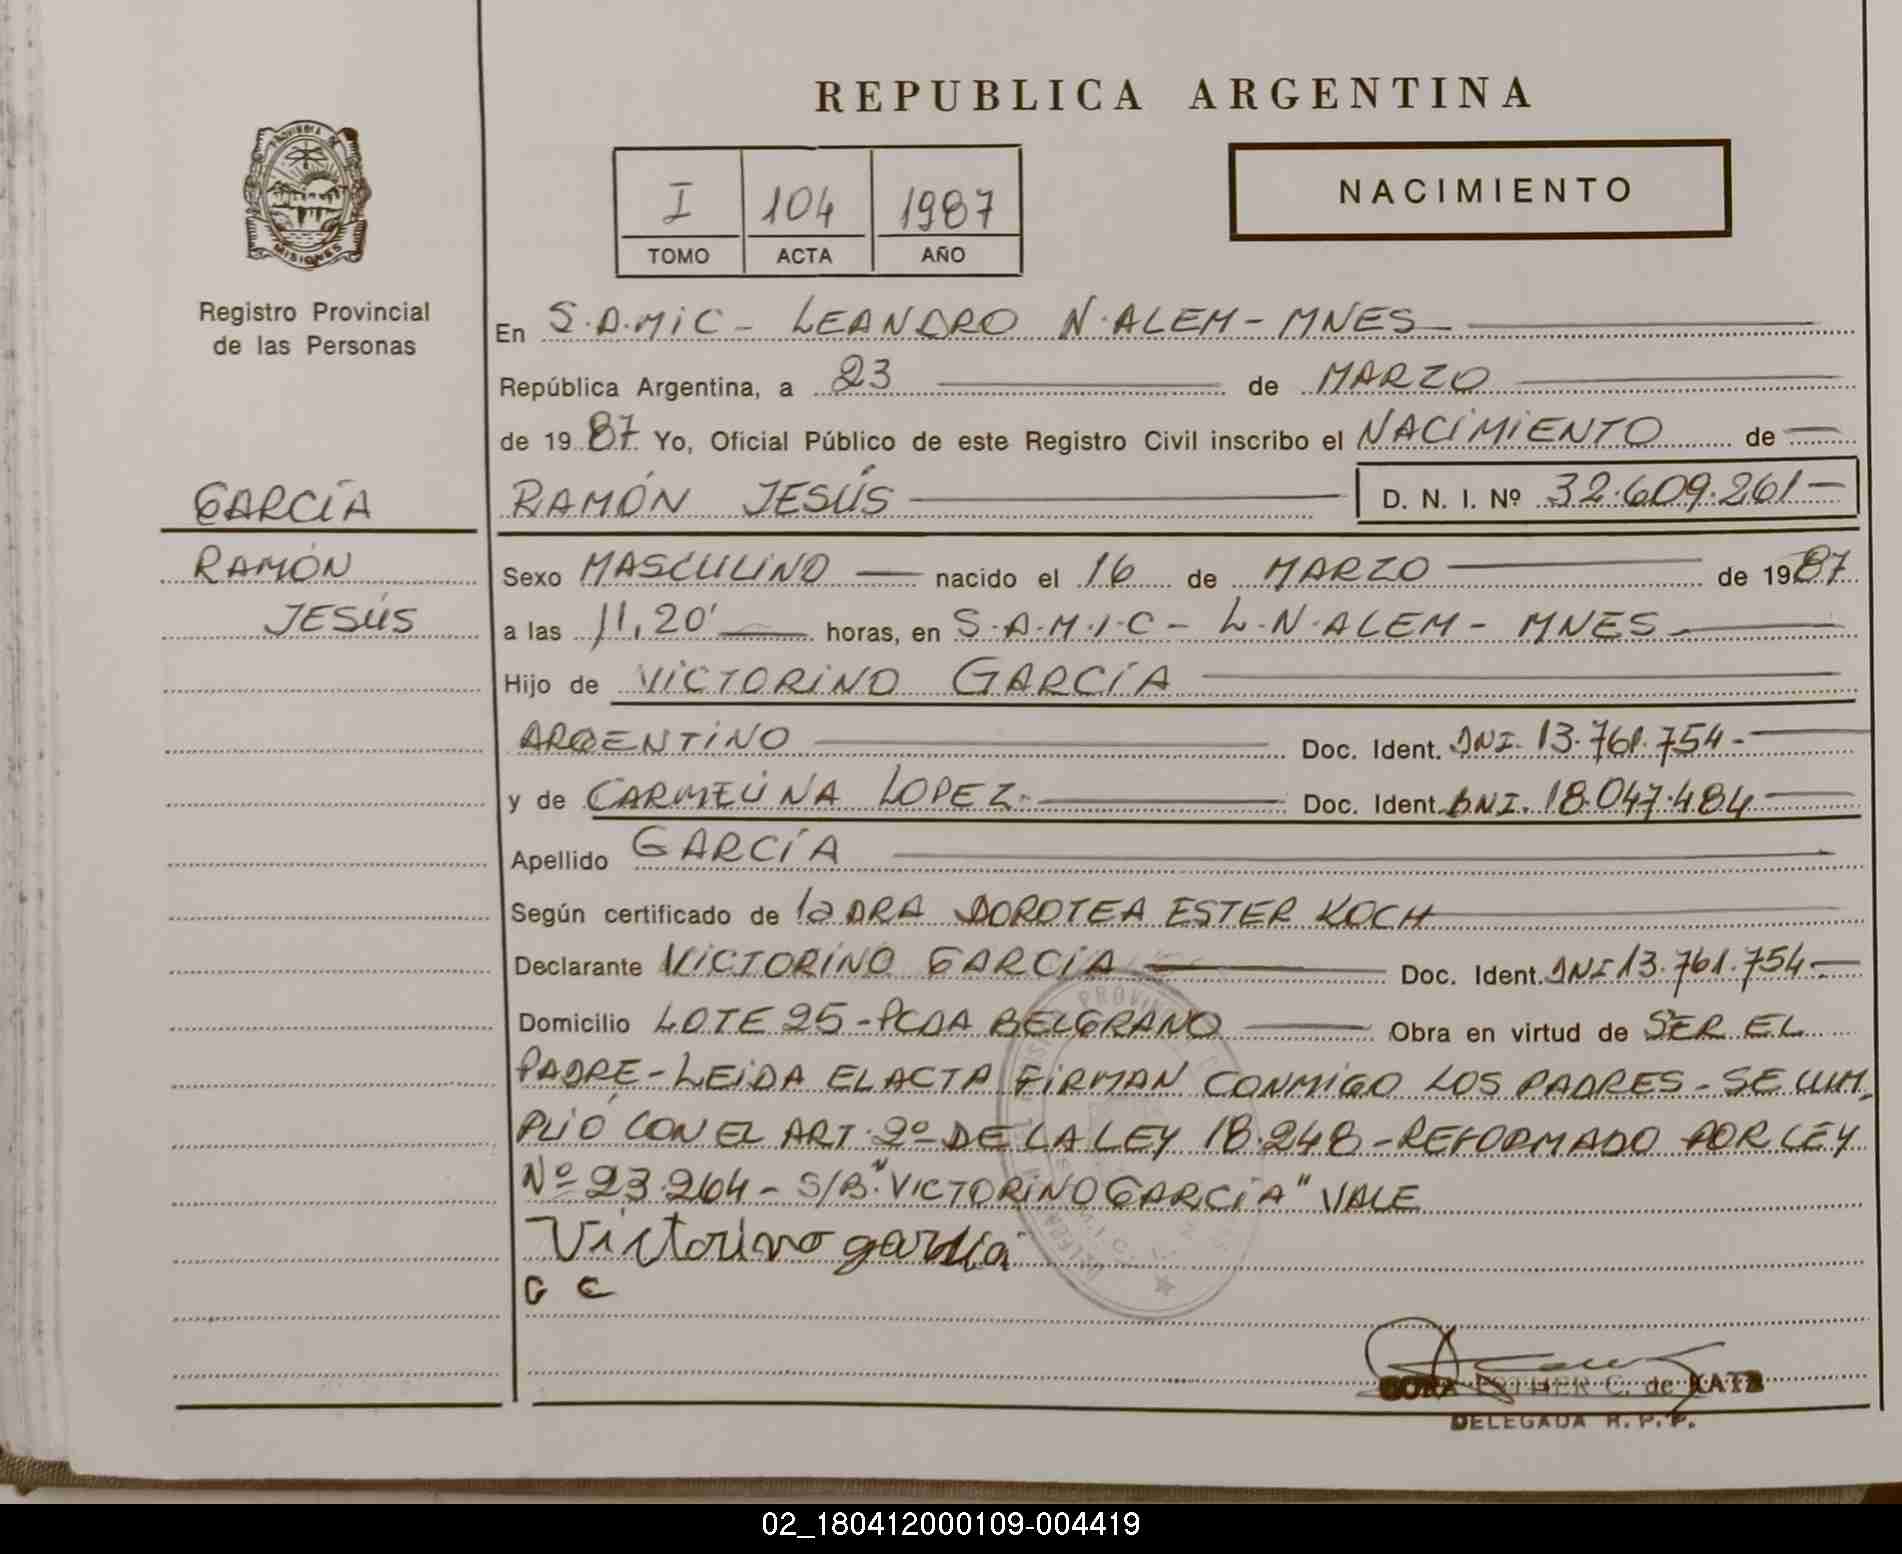 REPUBLICA ARGENTINA
PROVINCIA DE
MISIONES
Registro Provincial
de las Personas
I 104 1987
TOMO ACTA AÑO
NACIMIENTO
En S.A.MIC - LEANDRO N. ALEM - MNES
República Argentina, a 23 de MARZO
de 1987 Yo, Oficial Público de este Registro Civil inscribo el NACIMIENTO de
GARCÍA
RAMÓN JESÚS D. N. I. Nº 32.609.261
RAMÓN
JESÚS
Sexo MASCULINO nacido el 16 de MARZO de 1987
a las 11,20' horas, en S.A.M.I.C - L.N. ALEM - MNES
Hijo de VICTORINO GARCÍA
ARGENTINO Doc. Ident. DNI. 13.761.754-
y de CARMELINA LOPEZ. Doc. Ident. DNI. 18.047.484
Apellido GARCÍA
Según certificado de la DRA DOROTEA ESTER KOCH
Declarante VICTORINO GARCÍA Doc. Ident. DNI 13.761.754
Domicilio LOTE 25 - PCDA BELGRANO Obra en virtud de SER EL
PADRE - LEIDA EL ACTA FIRMAN CONMIGO LOS PADRES - SE CUM-
PLIÓ CON EL ART. 2º DE LA LEY 18.248 - REFORMADO POR LEY
Nº 23.264 - S/B. "VICTORINO GARCÍA" VALE
Victorino garcia
G C
ESTHER C. de KATZ
DELEGADA R. P. P.
02_180412000109-004419